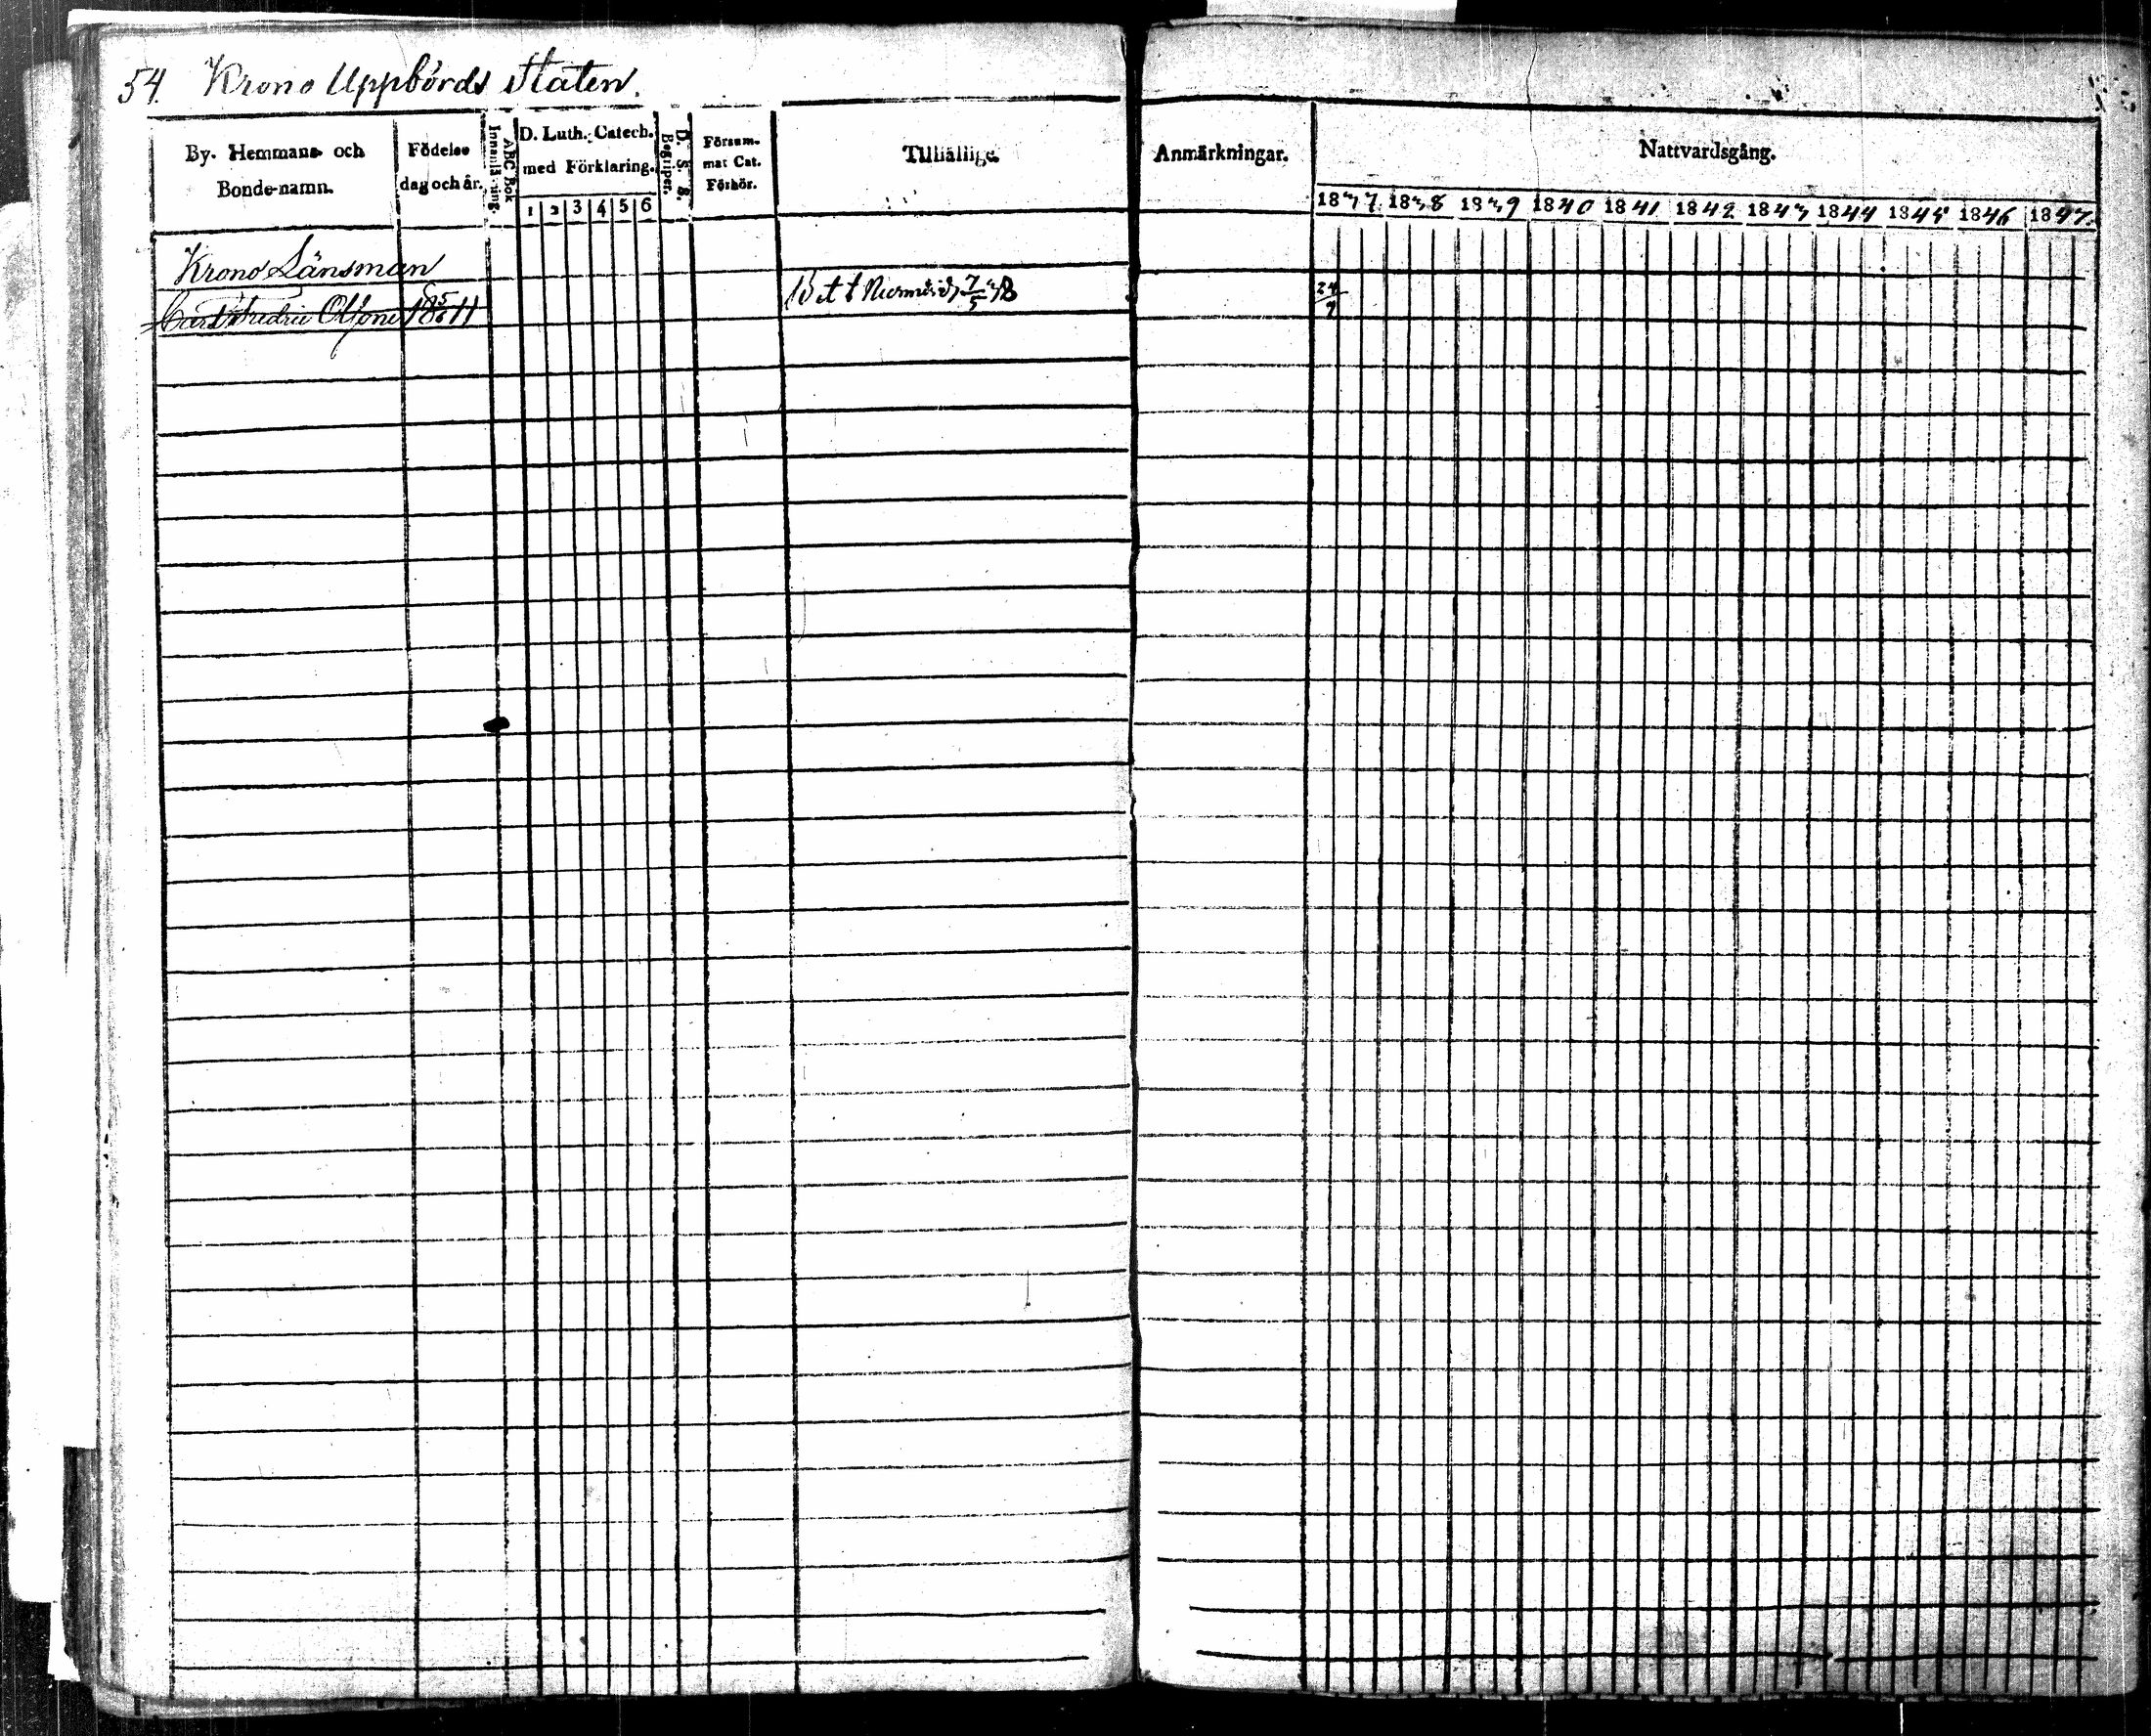 54. Krono Uppbörds Staten.
By- Hemmans- och Bonde-namn.
Födelse dag och år.
ABC Bok
Innanläsning.
D. Luth. Catech. med Förklaring.
1 2 3 4 5 6
D. S. B.
Begriper.
Försummat Cat. Förhör.
Tillfällige
Anmärkningar.
Nattvardsgång.
1837. 1838 1839 1840 1841 1842 1843 1844 1845 1846 1847.
Krono Länsman
Carl Fredric 18 11
Bet t 7/5 38
24/9